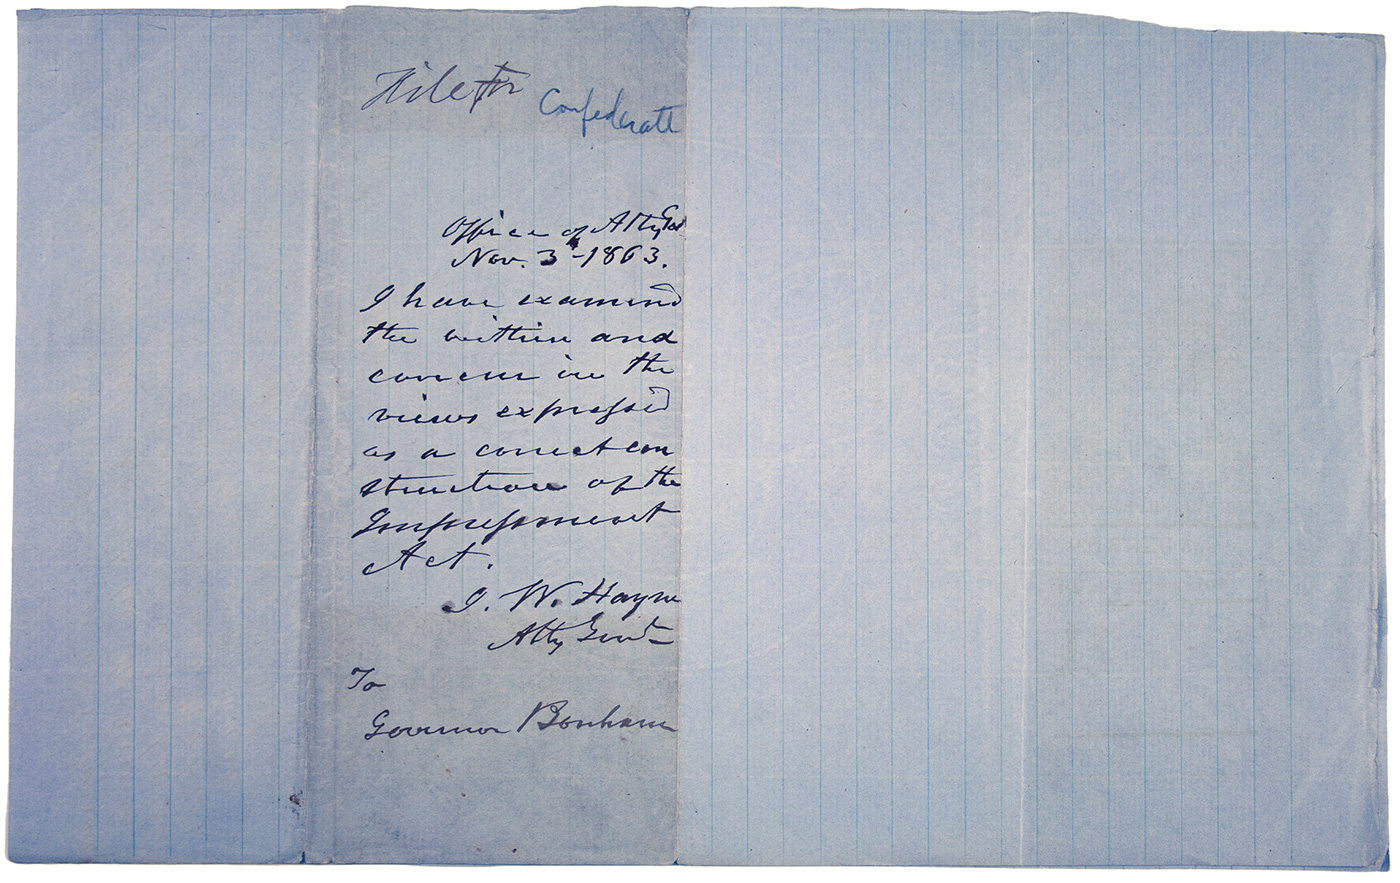 File
Confederate
Office of Atty Genl
Nov. 3d - 1863.
I have examined
the within and
concur in the
views expressed
as a correct con
struction of the
Impressment
Act.
I. W. Hayne
Atty Genl
To
Governor Bonham